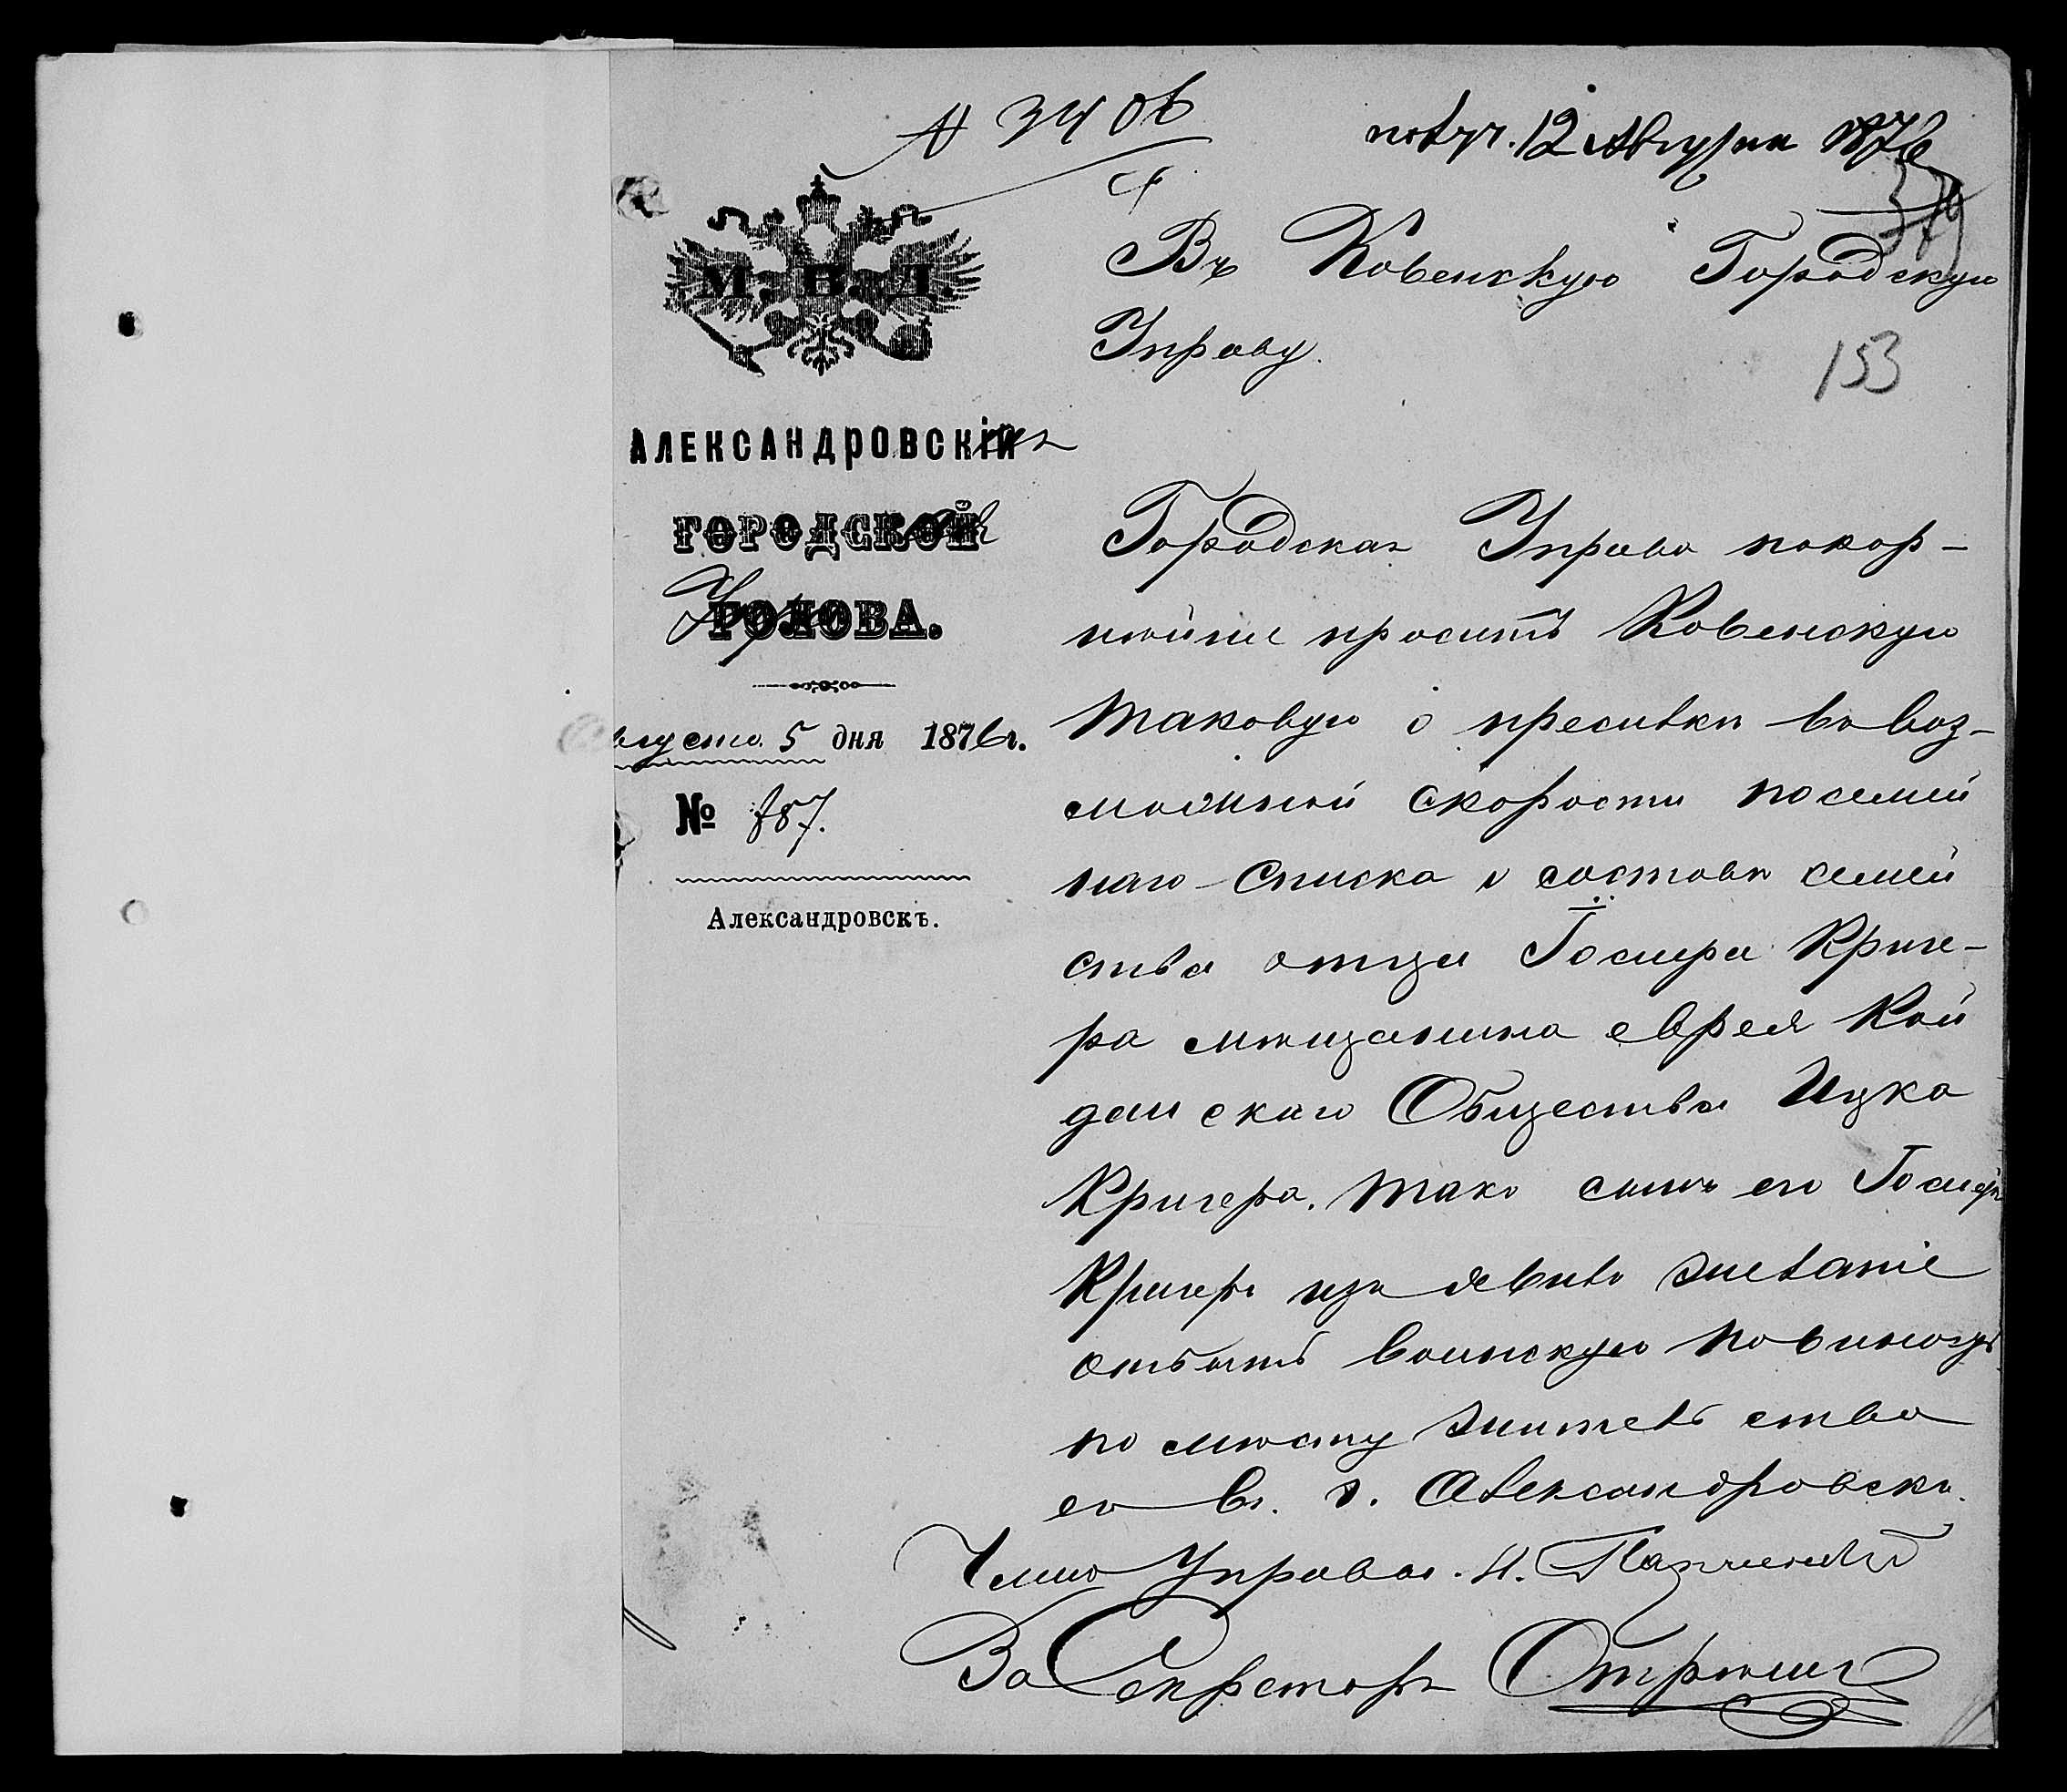 № 3406
получ. 12 Августа 1876
379
М. В. Д.
Въ Ковенскую Городскую
Управу.
153
АЛЕКСАНДРОВСКІЙ
ГОРОДСКОЙ
ГОЛОВА.
Августа 5 дня 1876 г.
№ 787.
Александровскъ.
Городская Управа покор-
нѣйше проситъ Ковенскую
таковую о присылкѣ въ воз-
можной скорости посемей
наго списка о составѣ семей
ства отца Іосифа Криге-
ра мѣщанина еврея Кей
данскаго Общества Ицка
Кригера. Такъ сынъ его Іосифъ
Кригеръ изъявилъ желаніе
отбыть воинскую повиность
по мѣсту жительства
его въ г. Александровскѣ.
Членъ Управы. И.
За Секретаря